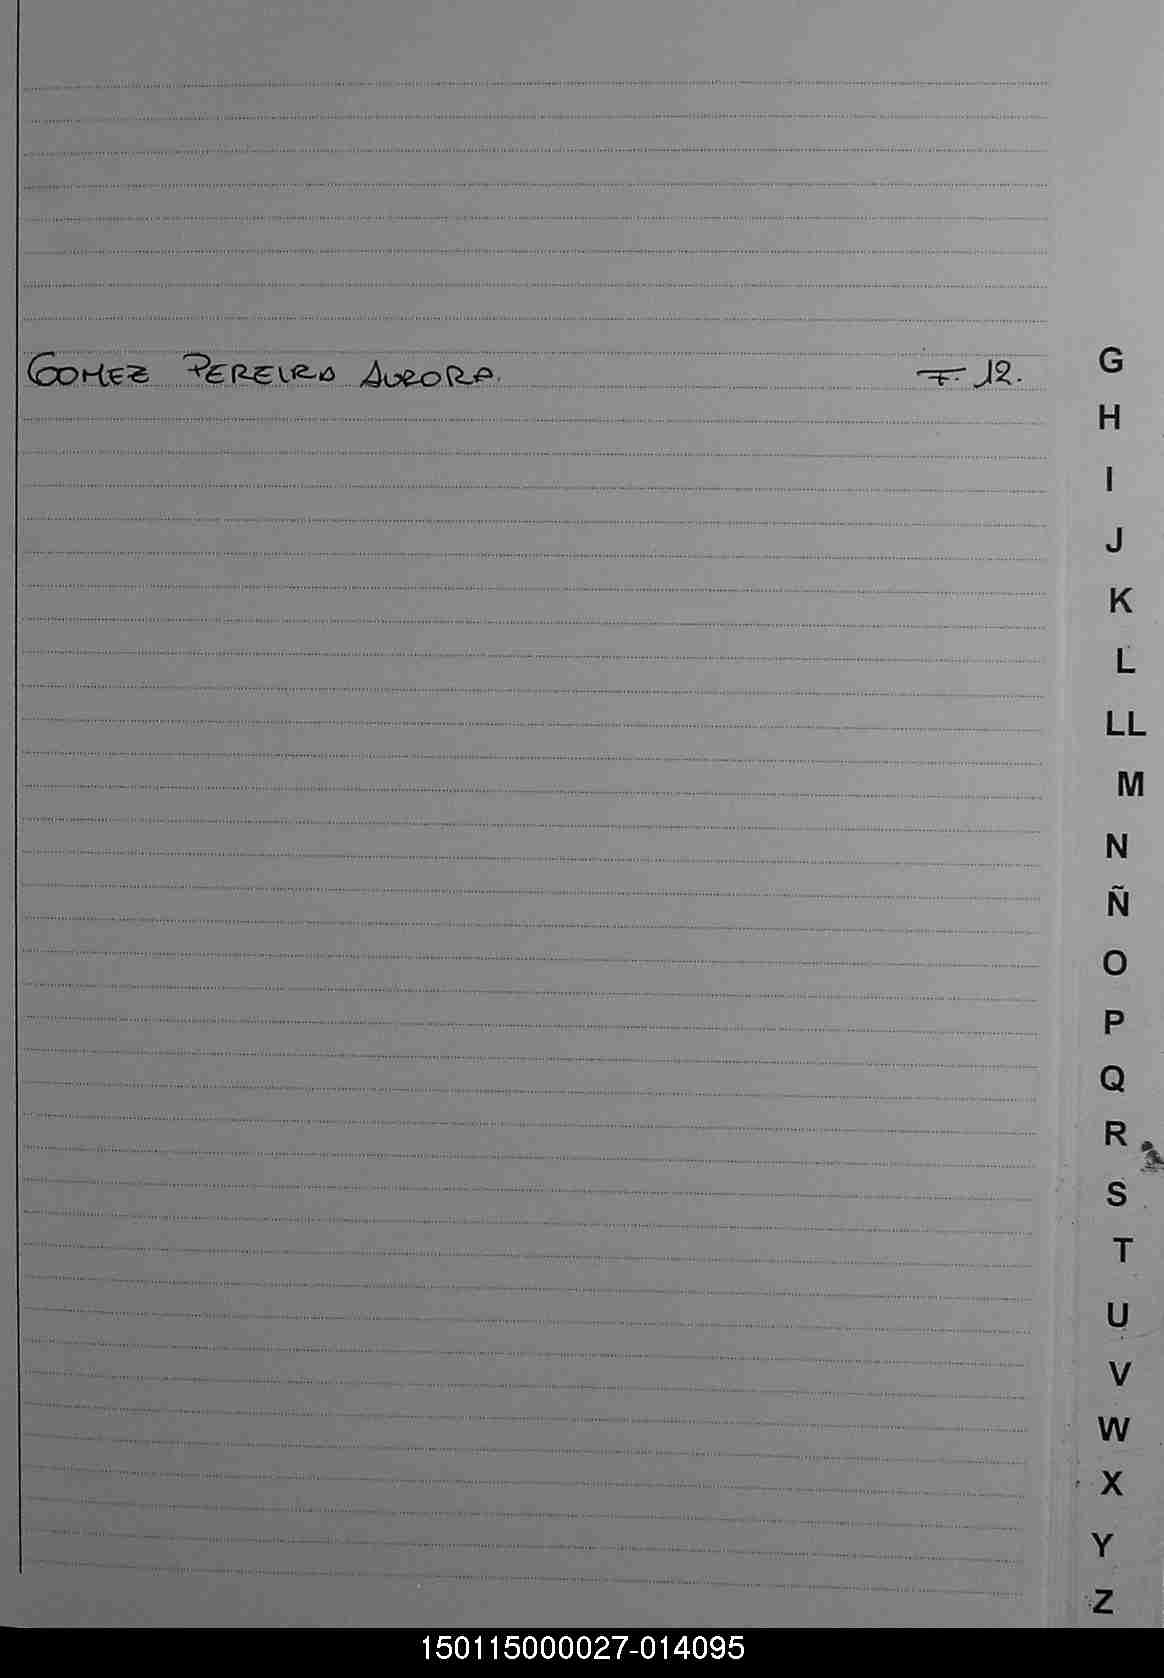 GOMEZ PEREIRA AURORA. F. 12.
G
H
I
J
K
L
LL
M
N
Ñ
O
P
Q
R
S
T
U
V
W
X
Y
Z
150115000027-014095